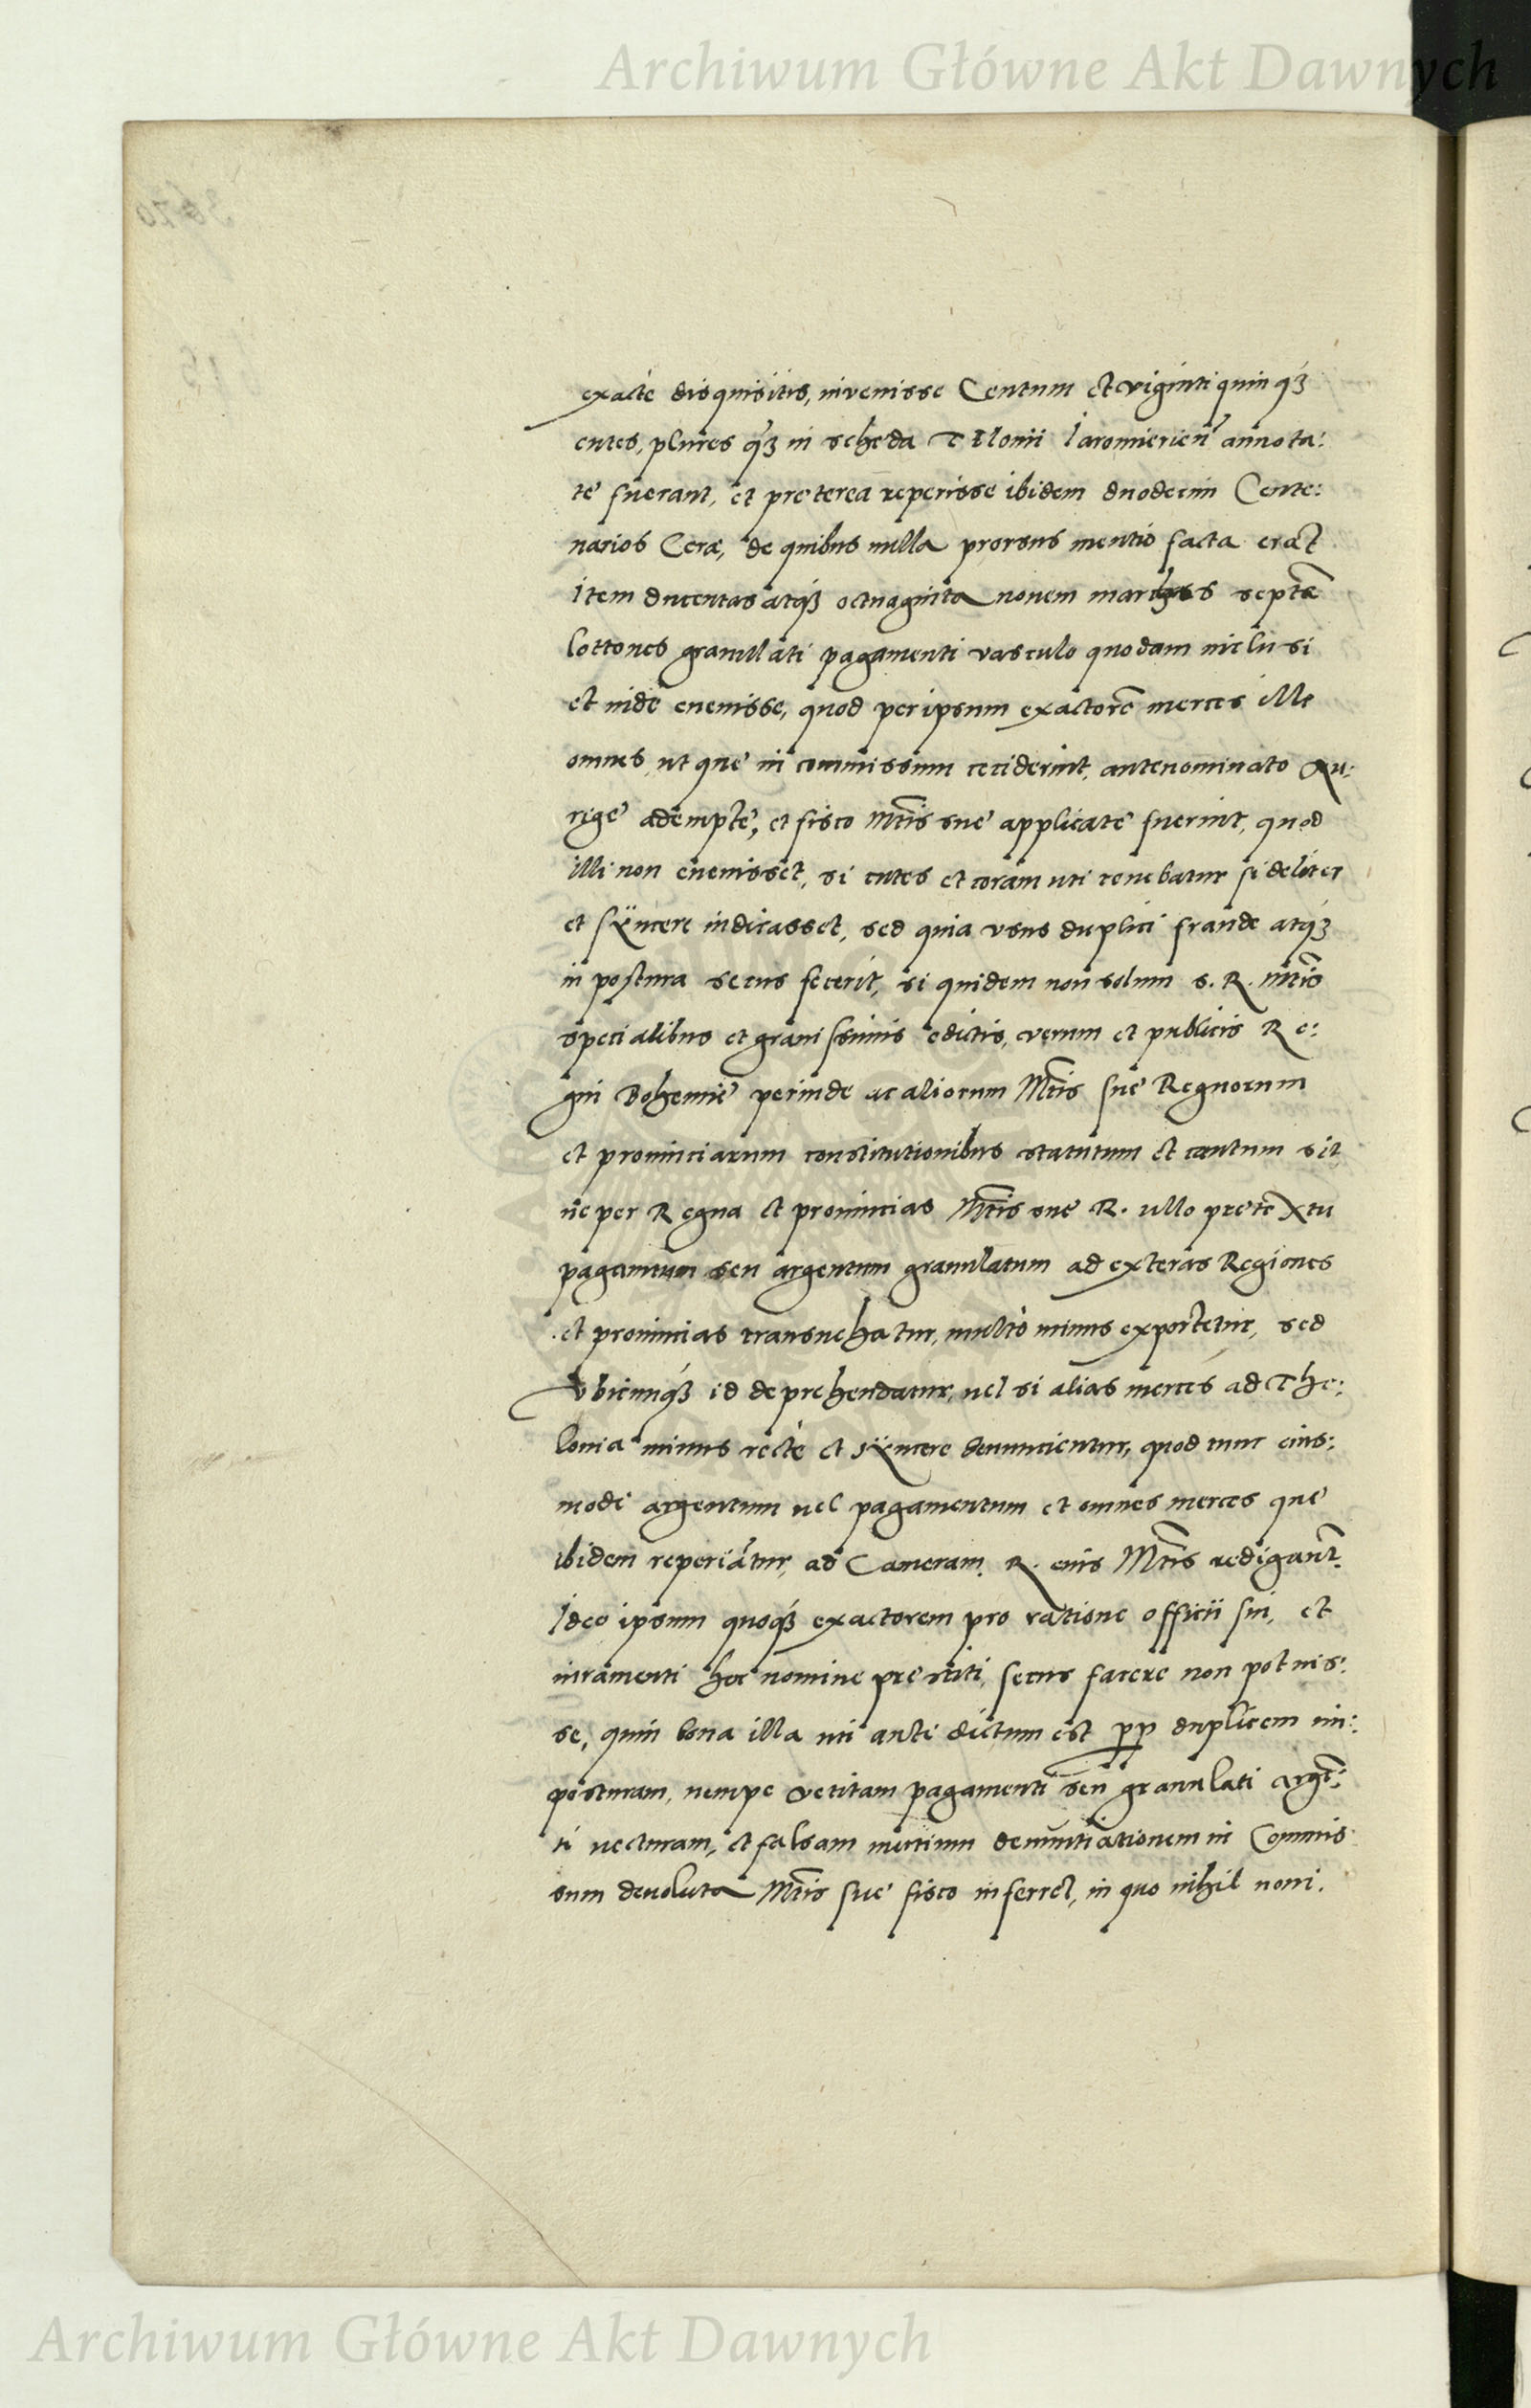 Archiwum Główne Akt Dawnych
exacte disquisitis, invenisse Centum et viginti quinqꝫ
cutes, plures qꝫ in scheda Telonii Iaromierien̄ annota:
te fuerant, et preterea reperisse ibidem duodecim Cente:
narios Cerae, de quibus nulla prorsus mentio facta erat
Item ducentas atqꝫ octuaginta novem marchas septē
lottones granulati pagamenti vasculo quodam inclusi
et inde evenisse, quod per ipsum exactorē merces ille
omnes, ut que in commissum ceciderint, antenominato Au:
rige adempte, et fisco Mtis sue applicate fuerint, quod
illi non evenisset, si cutes et coram uti tenebatur fideliter
et syncere indicasset, sed quia usus duplici fraude atqꝫ
inpostura secus fecerit, siquidem non solum S. R. Mtis
specialibus et gravissimis edictis, verum et publicis Re:
gni Bohemie perinde ac aliorum Mtis sue Regnorum
et provinciarum constitutionibus statutum et cautum sit
ne per Regna et provincias Mtis sue R. ullo pretextu
pagamentum seu argentum granulatum ad exteras Regiones
et provincias transvehatur, multo minus exportetur, sed
Ubicunqꝫ id deprehendatur, vel si alias merces ad The:
lonia minus recte et syncere denuncientur, quod tunc eius:
modi argentum vel pagamentum et omnes merces que
ibidem reperiātur, ad Cameram R. eius Mtis redigant.
Ideo ipsum quoqꝫ exactorem pro ratione officii sui, et
iuramenti hoc nomine prestiti, secus facere non potuis:
se, quin bona illa uti ante dictum est pp duplicem im:
posturam, nempe vetitam pagamenti seu granulati argē:
ti vecturam, et falsam mercium denuntiationem in Commis
sum devoluta Mtis sue fisco inferret, in quo nihil novi.
Archiwum Główne Akt Dawnych